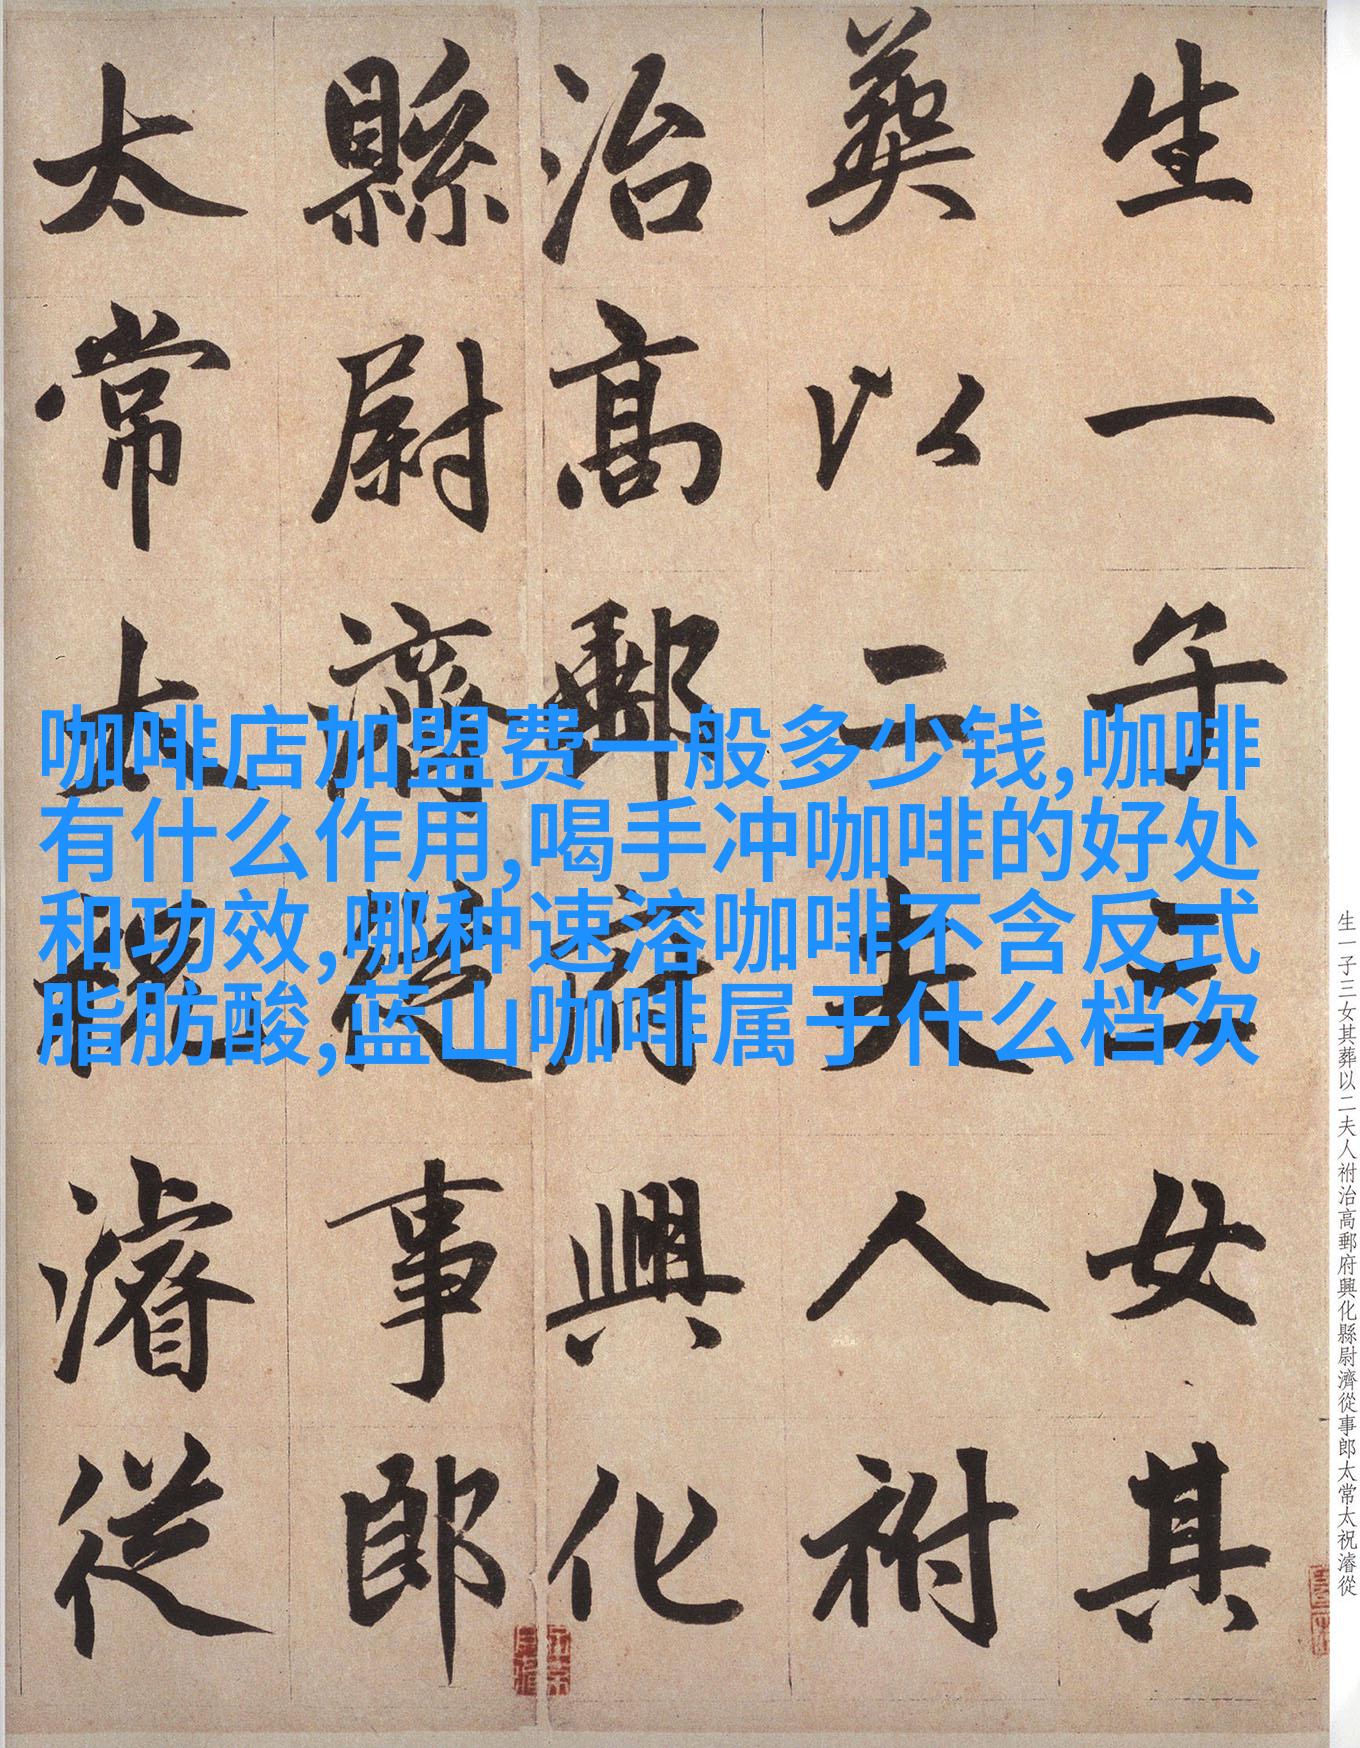 生一子三女其
葬以二夫人祔
治高郵府興化
縣尉濟從事郎
太常太祝濬從
咖啡店加盟费一般多少钱,咖啡
有什么作用,喝手冲咖啡的好处
和功效,哪种速溶咖啡不含反式
脂肪酸,蓝山咖啡属于什么档次
生一子三女其葬以二夫人祔治高郵府興化縣尉濟從事郎太常太祝濬從